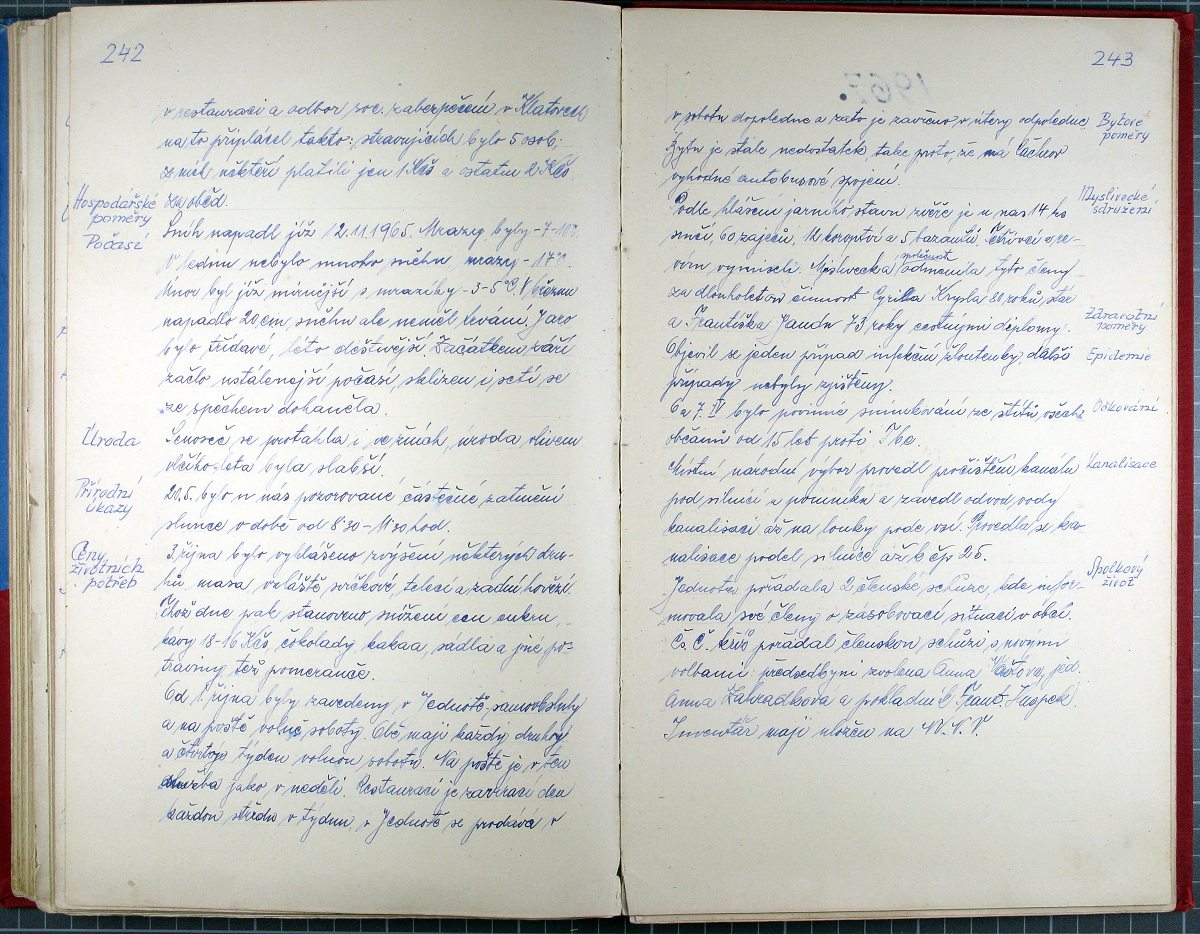 242
v restauraci a odbor soc. zabezpečení v Klatovech
na to připlácel takto: stravujících bylo 5 osob,
z nich někteří platili jen 1 Kčs a ostatní 2 Kčs
za oběd.
Hospodářské
poměry
Počasí
Sníh napadl již 12.11.1965. Mrazy byly -7-10°.
V lednu nebylo mnoho sněhu, mrazy -17°.
Únor byl již mírnější s mrazíky -3-5°C. V březnu
napadlo 20 cm sněhu ale neměl trvání. Jaro
bylo střídavé, léto deštivější. Začátkem září
začlo ustálenější počasí sklizen i setí se
ze spěchem doháněla.
Úroda
Senoseč se protáhla i ve žních, úroda vlivem
vlčího léta byla slabší.
Přírodní
úkazy
20.5. bylo u nás pozorované částečné zatmění
slunce v době od 8'30 - 11'30 hod.
Ceny
životních
potřeb
3. října bylo vyhlášeno zvýšení některých dru-
hů masa vzláště svíčkové, telecí a zadní hovězí.
Téhož dne pak stanoveno snížení cen cukru,
kávy 18-16 Kčs, čokolády, kakaa, sádla a jiné po-
traviny též pomeranče.
Od 1 října byly zavedeny v Jednotě-samoobsluhy
a na poště volné soboty. Obě mají každý druhý
a čtvrtý týden volnou sobotu. Na poště je v ten
služba jako v neděli. Restaurací je zavírací den
každou středu v týdnu, v Jednotě se prodává v
243
v sobotu dopoledne a zato je zavřeno v úterý odpoledne.
Bytové
poměry
Bytů je stále nedostatek také proto, že má Čachrov
výhodné autobusové spojení.
Myslivecké
sdružení
Podle hlášení jarního stavu zvěře je u nás 14 ks
srnčí, 60 zajíců, 12 koroptví a 5 bažantů. Tetřívci a te-
řevi vymizeli. Myslivecká společnost odměnila tyto členy
za dlouholetou činnost Cyrilla Krysla 80 roků stár
a Františka Jandu 73 roky čestnými diplomy.
Zdravotní
poměry
Epidemie
Objevil se jeden případ infekční žloutenky, další
případy nebyly zjištěny.
Očkování
6 a 7. IV bylo povinné snímkování ze štítů všech
občanů od 15 let proti Tbc.
Kanalisace
Místní národní výbor provedl pročištění kanálu
pod silnicí u pomníku a zavedl odvod vody
kanalisací až na louky pode vsí. Provedla se ka-
nalisace podél silnice až k čp 25.
Spolkový
život
Jednota pořádala 2 členské schůze, kde infor-
movala své členy o zásobovací situaci v obci.
Čs. Č. kříž pořádal členskou schůzi s novými
volbami: předsedkyní zvolena Anna jed.
Anna Zahradková a pokladník Frant.
Inventář mají uložen na M.N.V.